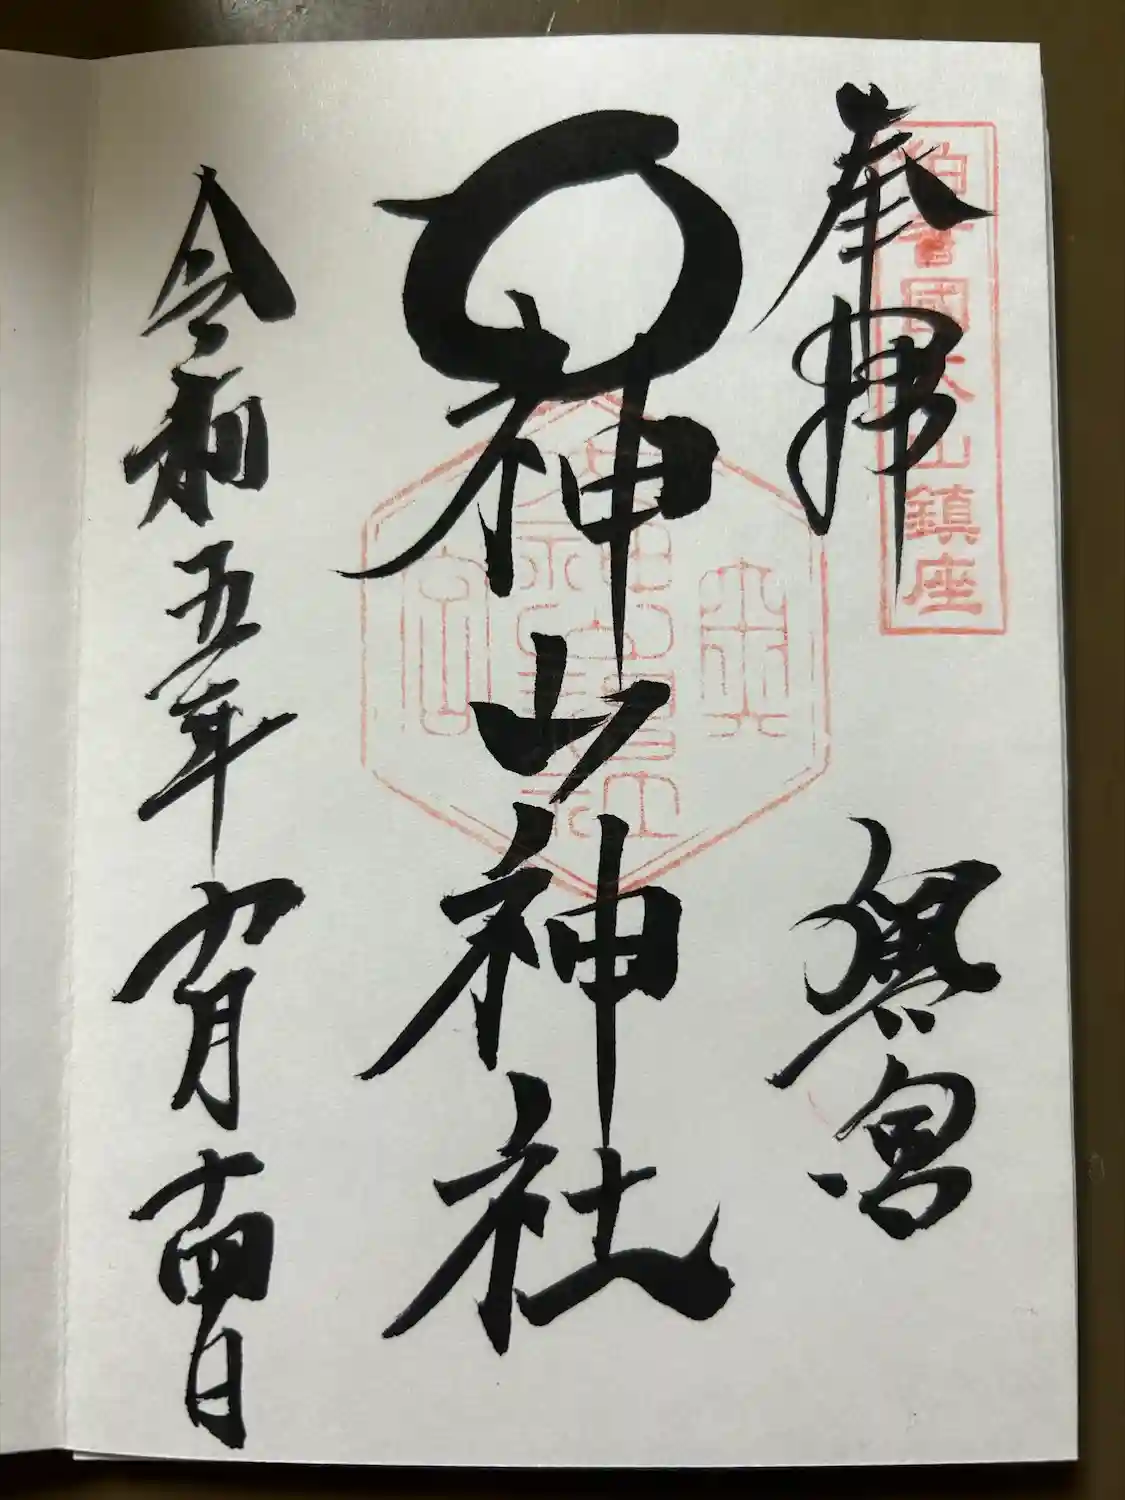 奉拝
奥宮
伯耆國大山鎮座
大神山神社
令和五年 月十四日